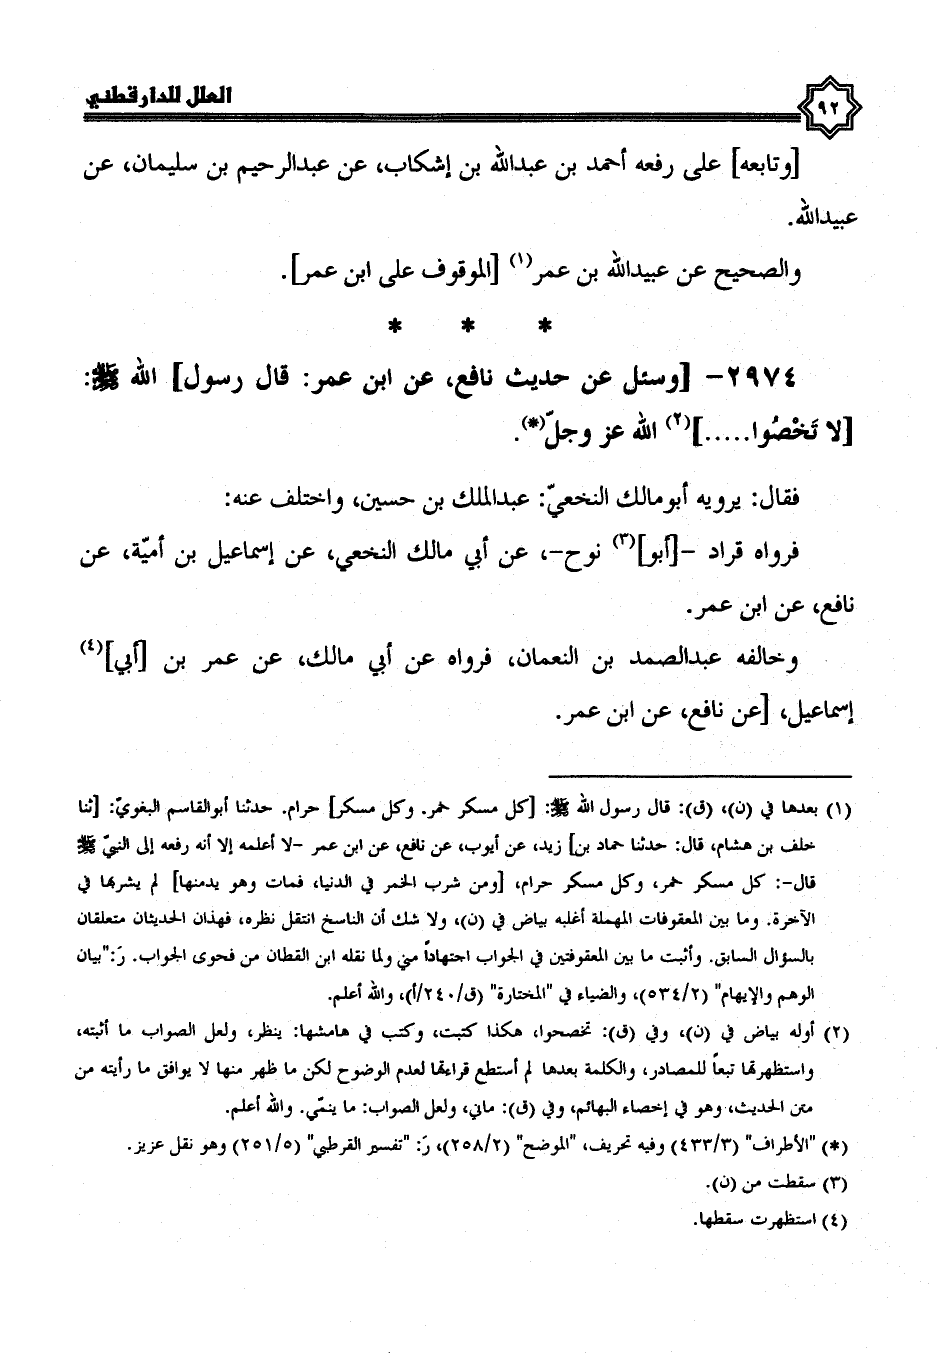 العلل للدارقطني
٩٢
[وتابعه] على رفعه أحمد بن عبدالله بن إشكاب، عن عبدالرحيم بن سليمان، عن
عبيدالله.
والصحيح عن عبيدالله بن عمر(١) [الموقوف على ابن عمر].
* * *
٢٩٧٤- [وسئل عن حديث نافع، عن ابن عمر: قال رسول] الله ﷺ:
[لا تَخْصُوا.....](٢) الله عز وجلّ(*).
فقال: يرويه أبومالك النخعيّ: عبدالملك بن حسين، واختلف عنه:
فرواه قراد -[أبو](٣) نوح-، عن أبي مالك النخعي، عن إسماعيل بن أميّة، عن
نافع، عن ابن عمر.
وخالفه عبدالصمد بن النعمان، فرواه عن أبي مالك، عن عمر بن [أبي](٤)
إسماعيل، [عن نافع، عن ابن عمر.
(١) بعدها في (ن)، (ق): قال رسول الله ﷺ: [كل مسكر خمر. وكل مسكر] حرام. حدثنا أبوالقاسم البغويّ: [ثنا
خلف بن هشام، قال: حدثنا حماد بن] زيد، عن أيوب، عن نافع، عن ابن عمر -لا أعلمه إلا أنه رفعه إلى النبيّ ﷺ
قال-: كل مسكر خمر، وكل مسكر حرام، [ومن شرب الخمر في الدنيا، فمات وهو يدمنها] لم يشربها في
الآخرة. وما بين المعقوفات المهملة أغلبه بياض في (ن)، ولا شك أن الناسخ انتقل نظره، فهذان الحديثان متعلقان
بالسؤال السابق. وأثبت ما بين المعقوفتين في الجواب اجتهاداً مني ولما نقله ابن القطان من فحوى الجواب. رَ:"بيان
الوهم والإيهام" (٥٣٤/٢)، والضياء في "المختارة" (ق/٢٤٠/أ)، والله أعلم.
(٢) أوله بياض في (ن)، وفي (ق): تخصحوا، هكذا كتبت، وكتب في هامشها: ينظر، ولعل الصواب ما أثبته،
واستظهرتها تبعاً للمصادر، والكلمة بعدها لم أستطع قراءتها لعدم الوضوح لكن ما ظهر منها لا يوافق ما رأيته من
متن الحديث، وهو في إخصاء البهائم، وفي (ق): ماني، ولعل الصواب: ما ينمّي. والله أعلم.
(*) "الأطراف" (٤٣٣/٣) وفيه تحريف، "الموضح" (٢٥٨/٢)، رَ: "تفسير القرطبي" (٢٥١/٥) وهو نقل عزيز.
(٣) سقطت من (ن).
(٤) استظهرت سقطها.